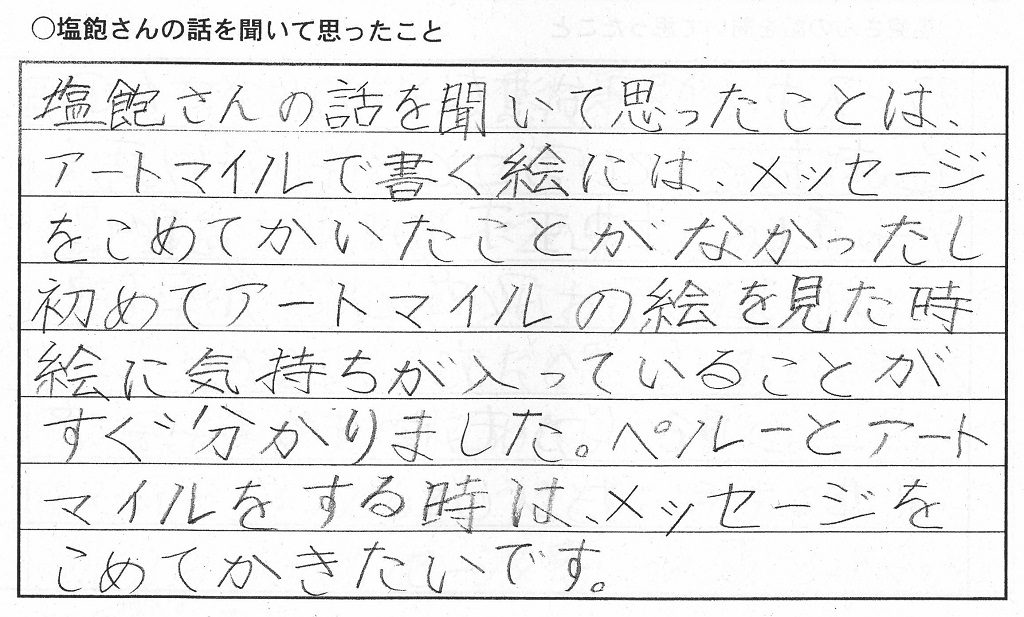 ○塩飽さんの話を聞いて思ったこと
塩飽さんの話を聞いて思ったことは、
アートマイルで書く絵には、メッセージ
をこめてかいたことがなかったし
初めてアートマイルの絵を見た時
絵に気持ちが入っていることが
すぐ分かりました。ペルーとアート
マイルをする時は、メッセージを
こめてかきたいです。